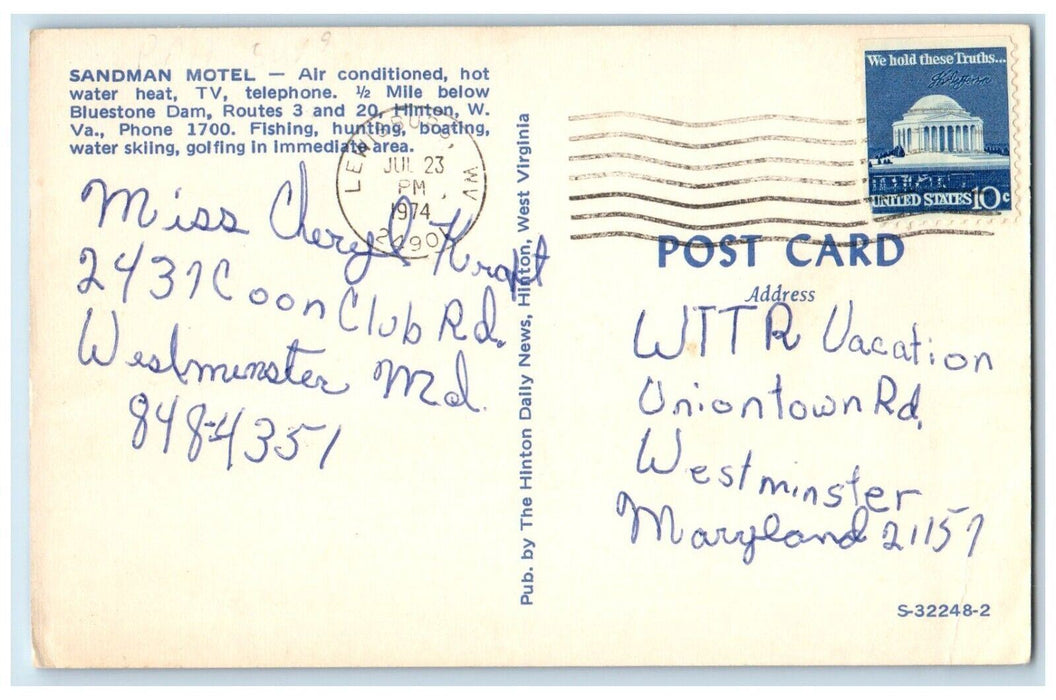 SANDMAN MOTEL — Air conditioned, hot
water heat, TV, telephone. ½ Mile below
Bluestone Dam, Routes 3 and 20, Hinton, W.
Va., Phone 1700. Fishing, hunting, boating,
water skiing, golfing in immediate area.
LEWISBURG, WV
JUL 23
PM
1974
24901
Miss Cheryl Kraft
2437 Coon Club Rd.
Westminster Md.
848-4351
Pub. by The Hinton Daily News, Hinton, West Virginia
We hold these Truths...
UNITED STATES 10c
POST CARD
Address
WTTR Vacation
Uniontown Rd.
Westminster
Maryland 21157
S-32248-2